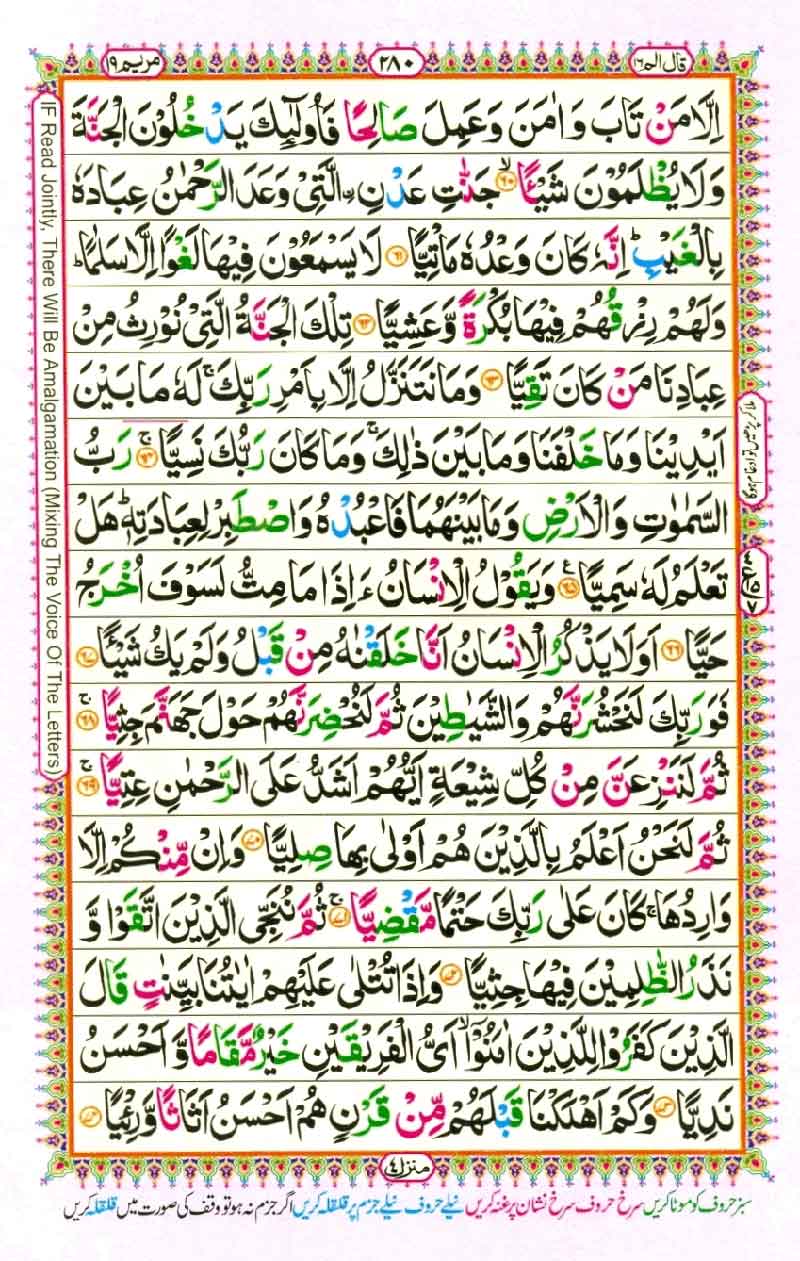 قال الم ١٦
٢٨٠
مريم ١٩
اِلَّا مَنْ تَابَ وَ اٰمَنَ وَ عَمِلَ صَالِحًا فَاُولٰٓئِكَ يَدْخُلُوْنَ الْجَنَّةَ
وَ لَا يُظْلَمُوْنَ شَيْـًٔا ۙ۶۰ جَنّٰتِ عَدْنِ ۣالَّتِيْ وَعَدَ الرَّحْمٰنُ عِبَادَهٗ
بِالْغَيْبِ ؕ اِنَّهٗ كَانَ وَعْدُهٗ مَاْتِيًّا ۶۱ لَا يَسْمَعُوْنَ فِيْهَا لَغْوًا اِلَّا سَلٰمًا ؕ
وَ لَهُمْ رِزْقُهُمْ فِيْهَا بُكْرَةً وَّ عَشِيًّا ۶۲ تِلْكَ الْجَنَّةُ الَّتِيْ نُوْرِثُ مِنْ
عِبَادِنَا مَنْ كَانَ تَقِيًّا ۶۳ وَ مَا نَتَنَزَّلُ اِلَّا بِاَمْرِ رَبِّكَ ۚ لَهٗ مَا بَيْنَ
اَيْدِيْنَا وَ مَا خَلْفَنَا وَ مَا بَيْنَ ذٰلِكَ ۚ وَ مَا كَانَ رَبُّكَ نَسِيًّا ۚ۶۴ رَبُّ
السَّمٰوٰتِ وَ الْاَرْضِ وَ مَا بَيْنَهُمَا فَاعْبُدْهُ وَ اصْطَبِرْ لِعِبَادَتِهٖ ؕ هَلْ
تَعْلَمُ لَهٗ سَمِيًّا ۶۵ۧ وَ يَقُوْلُ الْاِنْسَانُ ءَاِذَا مَا مِتُّ لَسَوْفَ اُخْرَجُ
حَيًّا ۶۶ اَوَ لَا يَذْكُرُ الْاِنْسَانُ اَنَّا خَلَقْنٰهُ مِنْ قَبْلُ وَ لَمْ يَكُ شَيْـًٔا ۶۷
فَوَ رَبِّكَ لَنَحْشُرَنَّهُمْ وَ الشَّيٰطِيْنَ ثُمَّ لَنُحْضِرَنَّهُمْ حَوْلَ جَهَنَّمَ جِثِيًّا ۚ۶۸
ثُمَّ لَنَنْزِعَنَّ مِنْ كُلِّ شِيْعَةٍ اَيُّهُمْ اَشَدُّ عَلَى الرَّحْمٰنِ عِتِيًّا ۚ۶۹
ثُمَّ لَنَحْنُ اَعْلَمُ بِالَّذِيْنَ هُمْ اَوْلٰى بِهَا صِلِيًّا ۷۰ وَ اِنْ مِّنْكُمْ اِلَّا
وَارِدُهَا ۚ كَانَ عَلٰى رَبِّكَ حَتْمًا مَّقْضِيًّا ۚ۷۱ ثُمَّ نُنَجِّي الَّذِيْنَ اتَّقَوْا وَّ
نَذَرُ الظّٰلِمِيْنَ فِيْهَا جِثِيًّا ۷۲ وَ اِذَا تُتْلٰى عَلَيْهِمْ اٰيٰتُنَا بَيِّنٰتٍ قَالَ
الَّذِيْنَ كَفَرُوْا لِلَّذِيْنَ اٰمَنُوْۤا ۙ اَيُّ الْفَرِيْقَيْنِ خَيْرٌ مَّقَامًا وَّ اَحْسَنُ
نَدِيًّا ۷۳ وَ كَمْ اَهْلَكْنَا قَبْلَهُمْ مِّنْ قَرْنٍ هُمْ اَحْسَنُ اَثَاثًا وَّ رِءْيًا ۷۴
IF Read Jointly, There Will Be Amalgamation (Mixing The Voice Of The Letters)
منزل ٤
سبز حروف کو موٹا کریں سرخ حروف سرخ نشان پر غنہ کریں نیلے حروف نیلے جزم پر قلقلہ کریں اگر جزم نہ ہو تو وقف کی صورت میں قلقلہ کریں